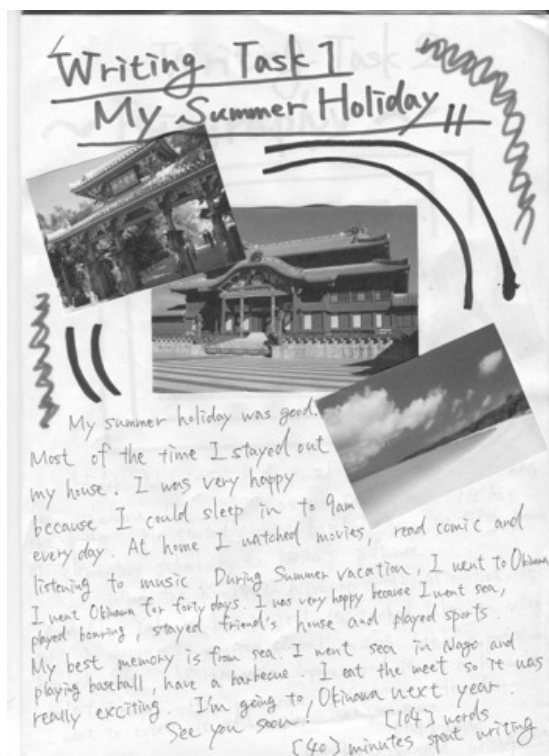 Writing Task 1
My Summer Holiday //
My summer holiday was good.
Most of the time I stayed out
my house. I was very happy
because I could sleep in to 9am
every day. At home I watched movies, read comic and
listening to music. During Summer vacation, I went to Okinawa
I went Okinawa for forty days. I was very happy because I went sea,
played bowring, stayed friend's house and played sports.
My best memory is from sea. I went sea in Nago and
playing baseball, have a barbecue. I eat the meet so it was
really exciting. I'm going to, Okinawa next year.
See you soon!
[104] words
[40] minutes spent writing